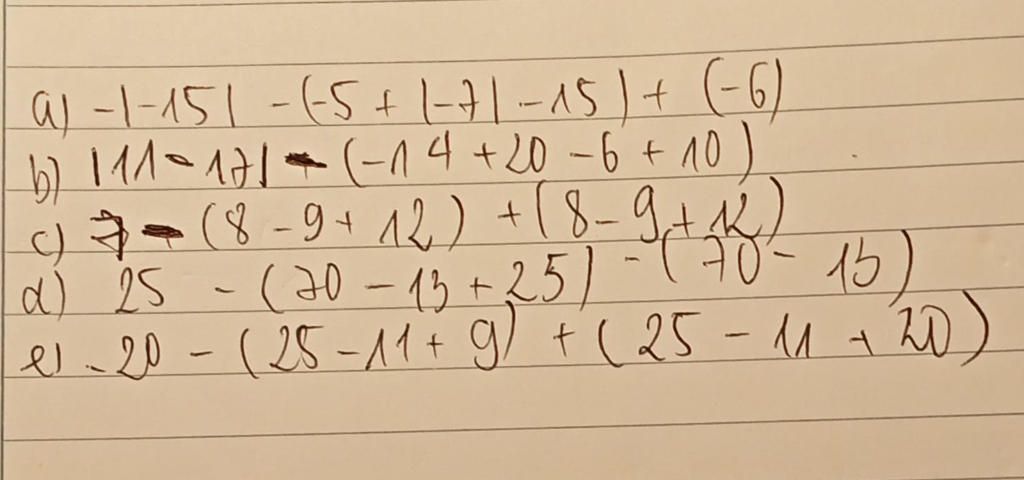 a) -|-15| - (-5 + |-7| - 15) + (-6)
b) |11 - 17| - (-14 + 20 - 6 + 10)
c) 7 - (8 - 9 + 12) + (8 - 9 + 12)
d) 25 - (70 - 13 + 25) - (70 - 13)
e) -20 - (25 - 11 + 9) + (25 - 11 + 20)